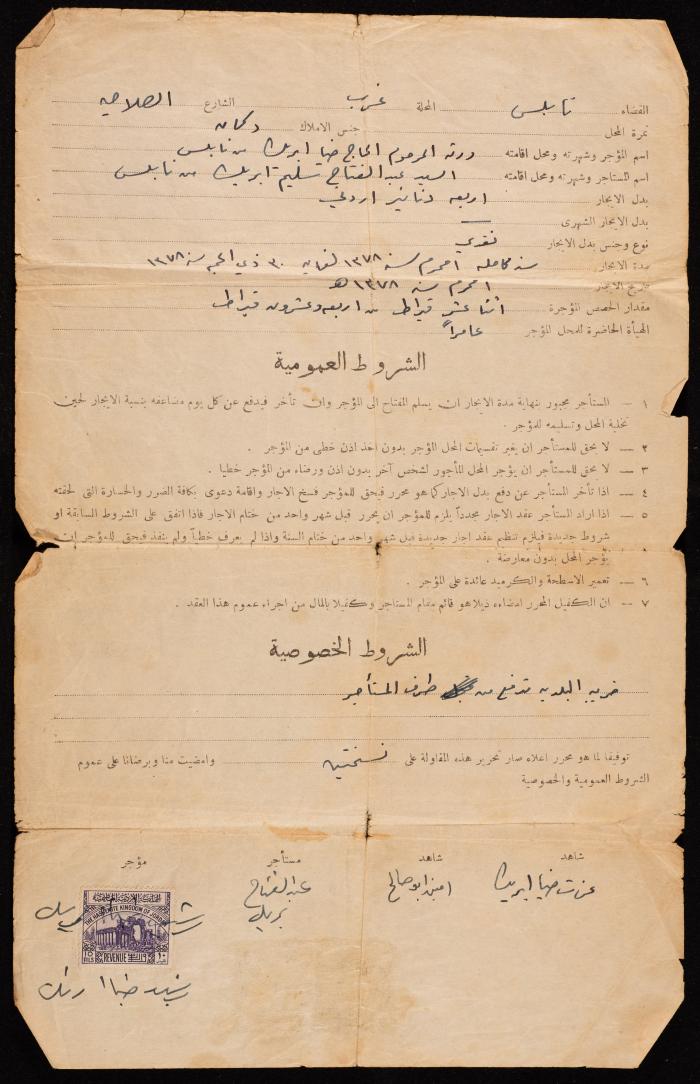 القضاء نابلس المحلة غرب الشارع الصلاحيه
نمرة المحل جنس الاملاك دكان
اسم المؤجر وشهرته ومحل اقامته ورثة المرحوم الحاج ضيا ابريك من نابلس
اسم المستاجر وشهرته ومحل اقامته السيد عبد الفتاح سليم ابريك من نابلس
بدل الايجار اربعه دنانير اردني
بدل الايجار الشهري
نوع وجنس بدل الايجار نقدي
مدة الايجار سنه كامله ١ محرم سنه ١٣٧٨ لغايه ٣٠ ذي الحجه سنه ١٣٧٨
تاريخ الايجار ١ محرم سنه ١٣٧٨ هـ
مقدار الحصص المؤجرة اثنا عشر قيراط من اربعه وعشرون قيراط
الهيأة الحاضرة للمحل المؤجر عامراً
الشروط العمومية
١ — المستأجر مجبور بنهاية مدة الايجار ان يسلم المفتاح الى المؤجر وان تأخر فيدفع عن كل يوم مضاعفه بنسبة الايجار لحين
تخلية المحل وتسليمه للمؤجر .
٢ — لا يحق للمستأجر ان يغير تقسيمات المحل المؤجر بدون اخذ اذن خطي من المؤجر .
٣ — لا يحق للمستأجر ان يؤجر المحل المأجور لشخص آخر بدون اذن ورضاء من المؤجر خطيا .
٤ — اذا تأخر المستأجر عن دفع بدل الاجار كما هو محرر فيحق للمؤجر فسخ الاجار واقامة دعوى بكافة الضرر والخسارة التى لحقته
٥ — اذا اراد المستأجر عقد الاجار مجدداً يلزم للمؤجر ان يحرر قبل شهر واحد من ختام الاجار فاذا اتفق على الشروط السابقة او
شروط جديدة فيلزم تنظيم عقد اجار جديدة قبل شهر واحد من ختام السنة واذا لم يعرف خطياً ولم ينفذ فيحق للمؤجر ان
يؤجر المحل بدون معارضة .
٦ — تعمير الاسطحة والكرميد عائدة على المؤجر .
٧ — ان الكفيل المحرر امضاءه ذيلا هو قائم مقام المستاجر وكفيلا بالمال من اجراء عموم هذا العقد .
الشروط الخصوصية
ضريبه البلديه تدفع من طرف المستأجر
توفيقا لما هو محرر اعلاه صار تحرير هذه المقاولة على نسختين وامضيت منا وبرضانا على عموم
الشروط العمومية والخصوصية
شاهد شاهد مستأجر مؤجر
عزت ضيا ابريك امين ابو صالح عبد الفتاح
بريك
THE HASHEMITE KINGDOM OF JORDAN
REVENUE
10 FILS
رشيد ضيا ابريك